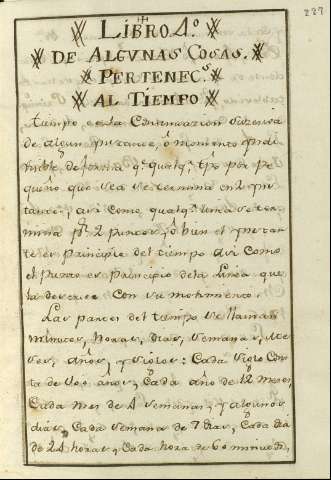 227
LIBRO 4.º
DE ALGUNAS COSAS.
PERTENEC.s
AL TIEMPO
tiempo es la Continuacion
de algun instante, o momento
de forma q.e qualq.r tpo por pe
queño que sea se termina en 2 ins
tantes, asi como qualq.r linea se ter
mina p.r 2 puntos, ô bien el instan
te es Principio del tiempo asi como
el punto es Principio dela Linea que
la descrive Con su movimiento.
Las partes del tiempo se llaman
minutos, Horas, Dias, Semanas, Me
ses, años, y siglos: Cada siglo Con
ta de 100 años, y Cada año de 12 meses
Cada mes de 4 semanas, y algunos
dias, Cada semana de 7 dias, Cada dia
de 24 horas, y Cada hora de 60 minutos,